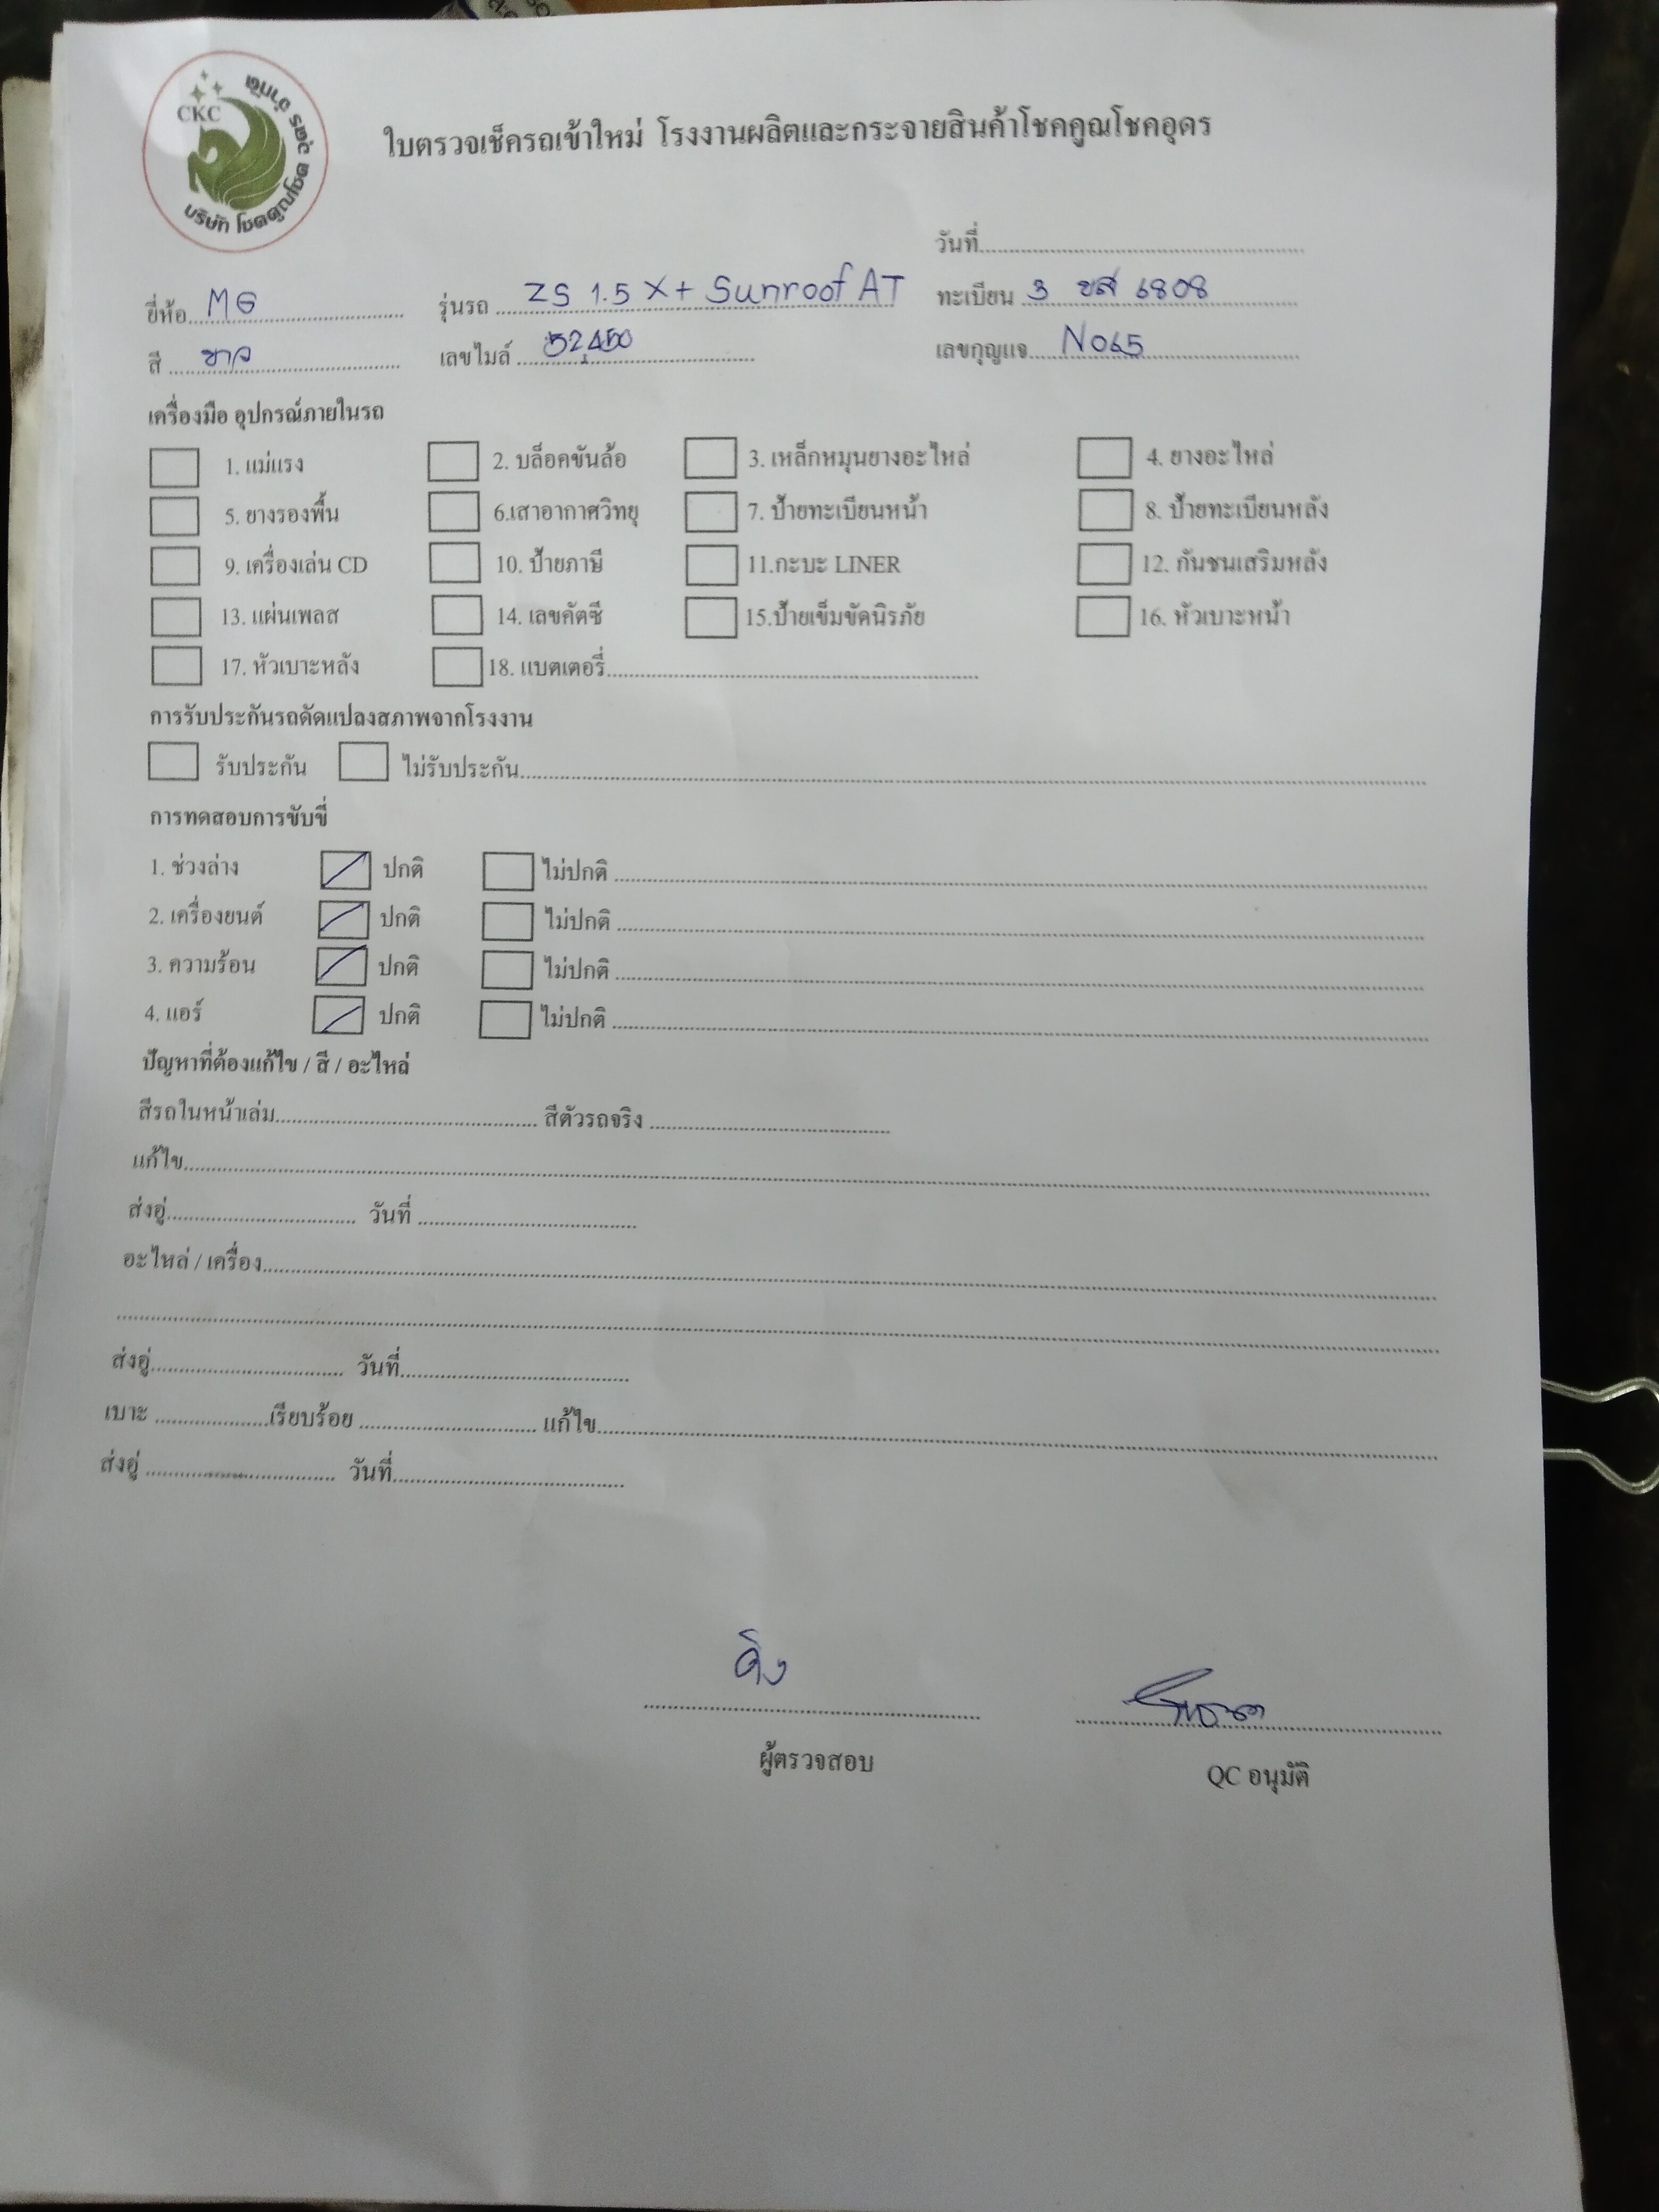 CKC
บริษัท โชคคูณโชค อุดร จำกัด
ใบตรวจเช็ครถเข้าใหม่ โรงงานผลิตและกระจายสินค้าโชคคูณโชคอุดร
วันที่
ยี่ห้อ MG รุ่นรถ ZS 1.5 X+ Sunroof AT ทะเบียน 3 ขส 6808
สี ขาว เลขไมล์ 52,450 เลขกุญแจ N065
เครื่องมือ อุปกรณ์ภายในรถ
1. แม่แรง 2. บล็อคขันล้อ 3. เหล็กหมุนยางอะไหล่ 4. ยางอะไหล่
5. ยางรองพื้น 6.เสาอากาศวิทยุ 7. ป้ายทะเบียนหน้า 8. ป้ายทะเบียนหลัง
9. เครื่องเล่น CD 10. ป้ายภาษี 11.กะบะ LINER 12. กันชนเสริมหลัง
13. แผ่นเพลส 14. เลขคัตซี 15.ป้ายเข็มขัดนิรภัย 16. หัวเบาะหน้า
17. หัวเบาะหลัง 18. แบตเตอรี่
การรับประกันรถดัดแปลงสภาพจากโรงงาน
รับประกัน ไม่รับประกัน
การทดสอบการขับขี่
1. ช่วงล่าง ปกติ ไม่ปกติ
2. เครื่องยนต์ ปกติ ไม่ปกติ
3. ความร้อน ปกติ ไม่ปกติ
4. แอร์ ปกติ ไม่ปกติ
ปัญหาที่ต้องแก้ไข / สี / อะไหล่
สีรถในหน้าเล่ม สีตัวรถจริง
แก้ไข
ส่งอู่ วันที่
อะไหล่ / เครื่อง
ส่งอู่ วันที่
เบาะ เรียบร้อย แก้ไข
ส่งอู่ วันที่
ผู้ตรวจสอบ QC อนุมัติ